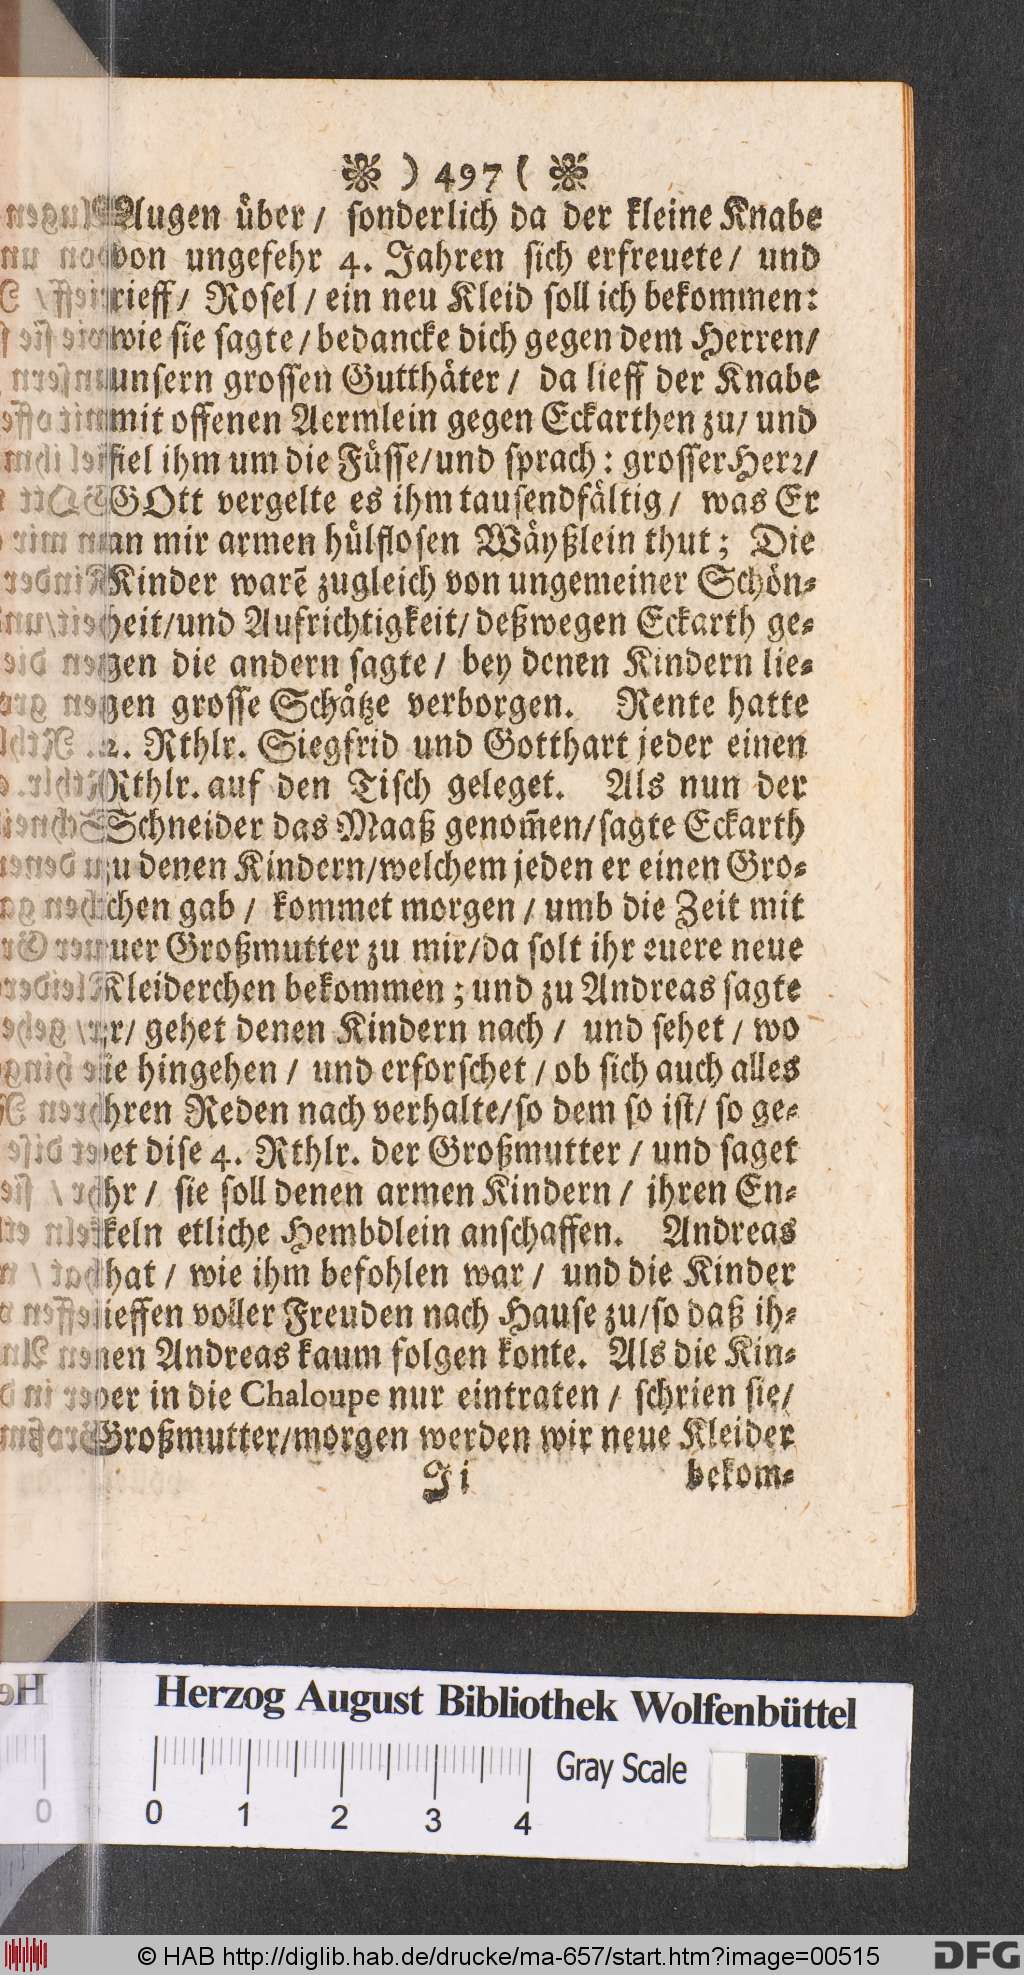 ) 497 (
Augen über / sonderlich da der kleine Knabe
von ungefehr 4. Jahren sich erfreuete / und
rieff / Rosel / ein neu Kleid soll ich bekommen:
wie sie sagte / bedancke dich gegen dem Herren /
unsern grossen Gutthäter / da lieff der Knabe
mit offenen Aermlein gegen Eckarthen zu / und
fiel ihm um die Füsse / und sprach : grosser Herꝛ /
GOtt vergelte es ihm tausendfältig / was Er
an mir armen hülflosen Wäyßlein thut ; Die
Kinder warē zugleich von ungemeiner Schön-
heit / und Aufrichtigkeit / deßwegen Eckarth ge-
gen die andern sagte / bey denen Kindern lie-
gen grosse Schätze verborgen. Rente hatte
2. Rthlr. Siegfrid und Gotthart jeder einen
Rthlr. auf den Tisch geleget. Als nun der
Schneider das Maaß genom̃en / sagte Eckarth
zu denen Kindern / welchem jeden er einen Gro-
schen gab / kommet morgen / umb die Zeit mit
euer Großmutter zu mir / da solt ihr euere neue
Kleiderchen bekommen ; und zu Andreas sagte
er / gehet denen Kindern nach / und sehet / wo
sie hingehen / und erforschet / ob sich auch alles
ihren Reden nach verhalte / so dem so ist / so ge-
bet dise 4. Rthlr. der Großmutter / und saget
ihr / sie soll denen armen Kindern / ihren En-
keln etliche Hembdlein anschaffen. Andreas
that / wie ihm befohlen war / und die Kinder
lieffen voller Freuden nach Hause zu / so daß ih-
nen Andreas kaum folgen konte. Als die Kin-
der in die Chaloupe nur eintraten / schrien sie /
Großmutter / morgen werden wir neue Kleider
Ji bekom-
Herzog August Bibliothek Wolfenbüttel
Gray Scale
0 1 2 3 4
© HAB http://diglib.hab.de/drucke/ma-657/start.htm?image=00515
DFG